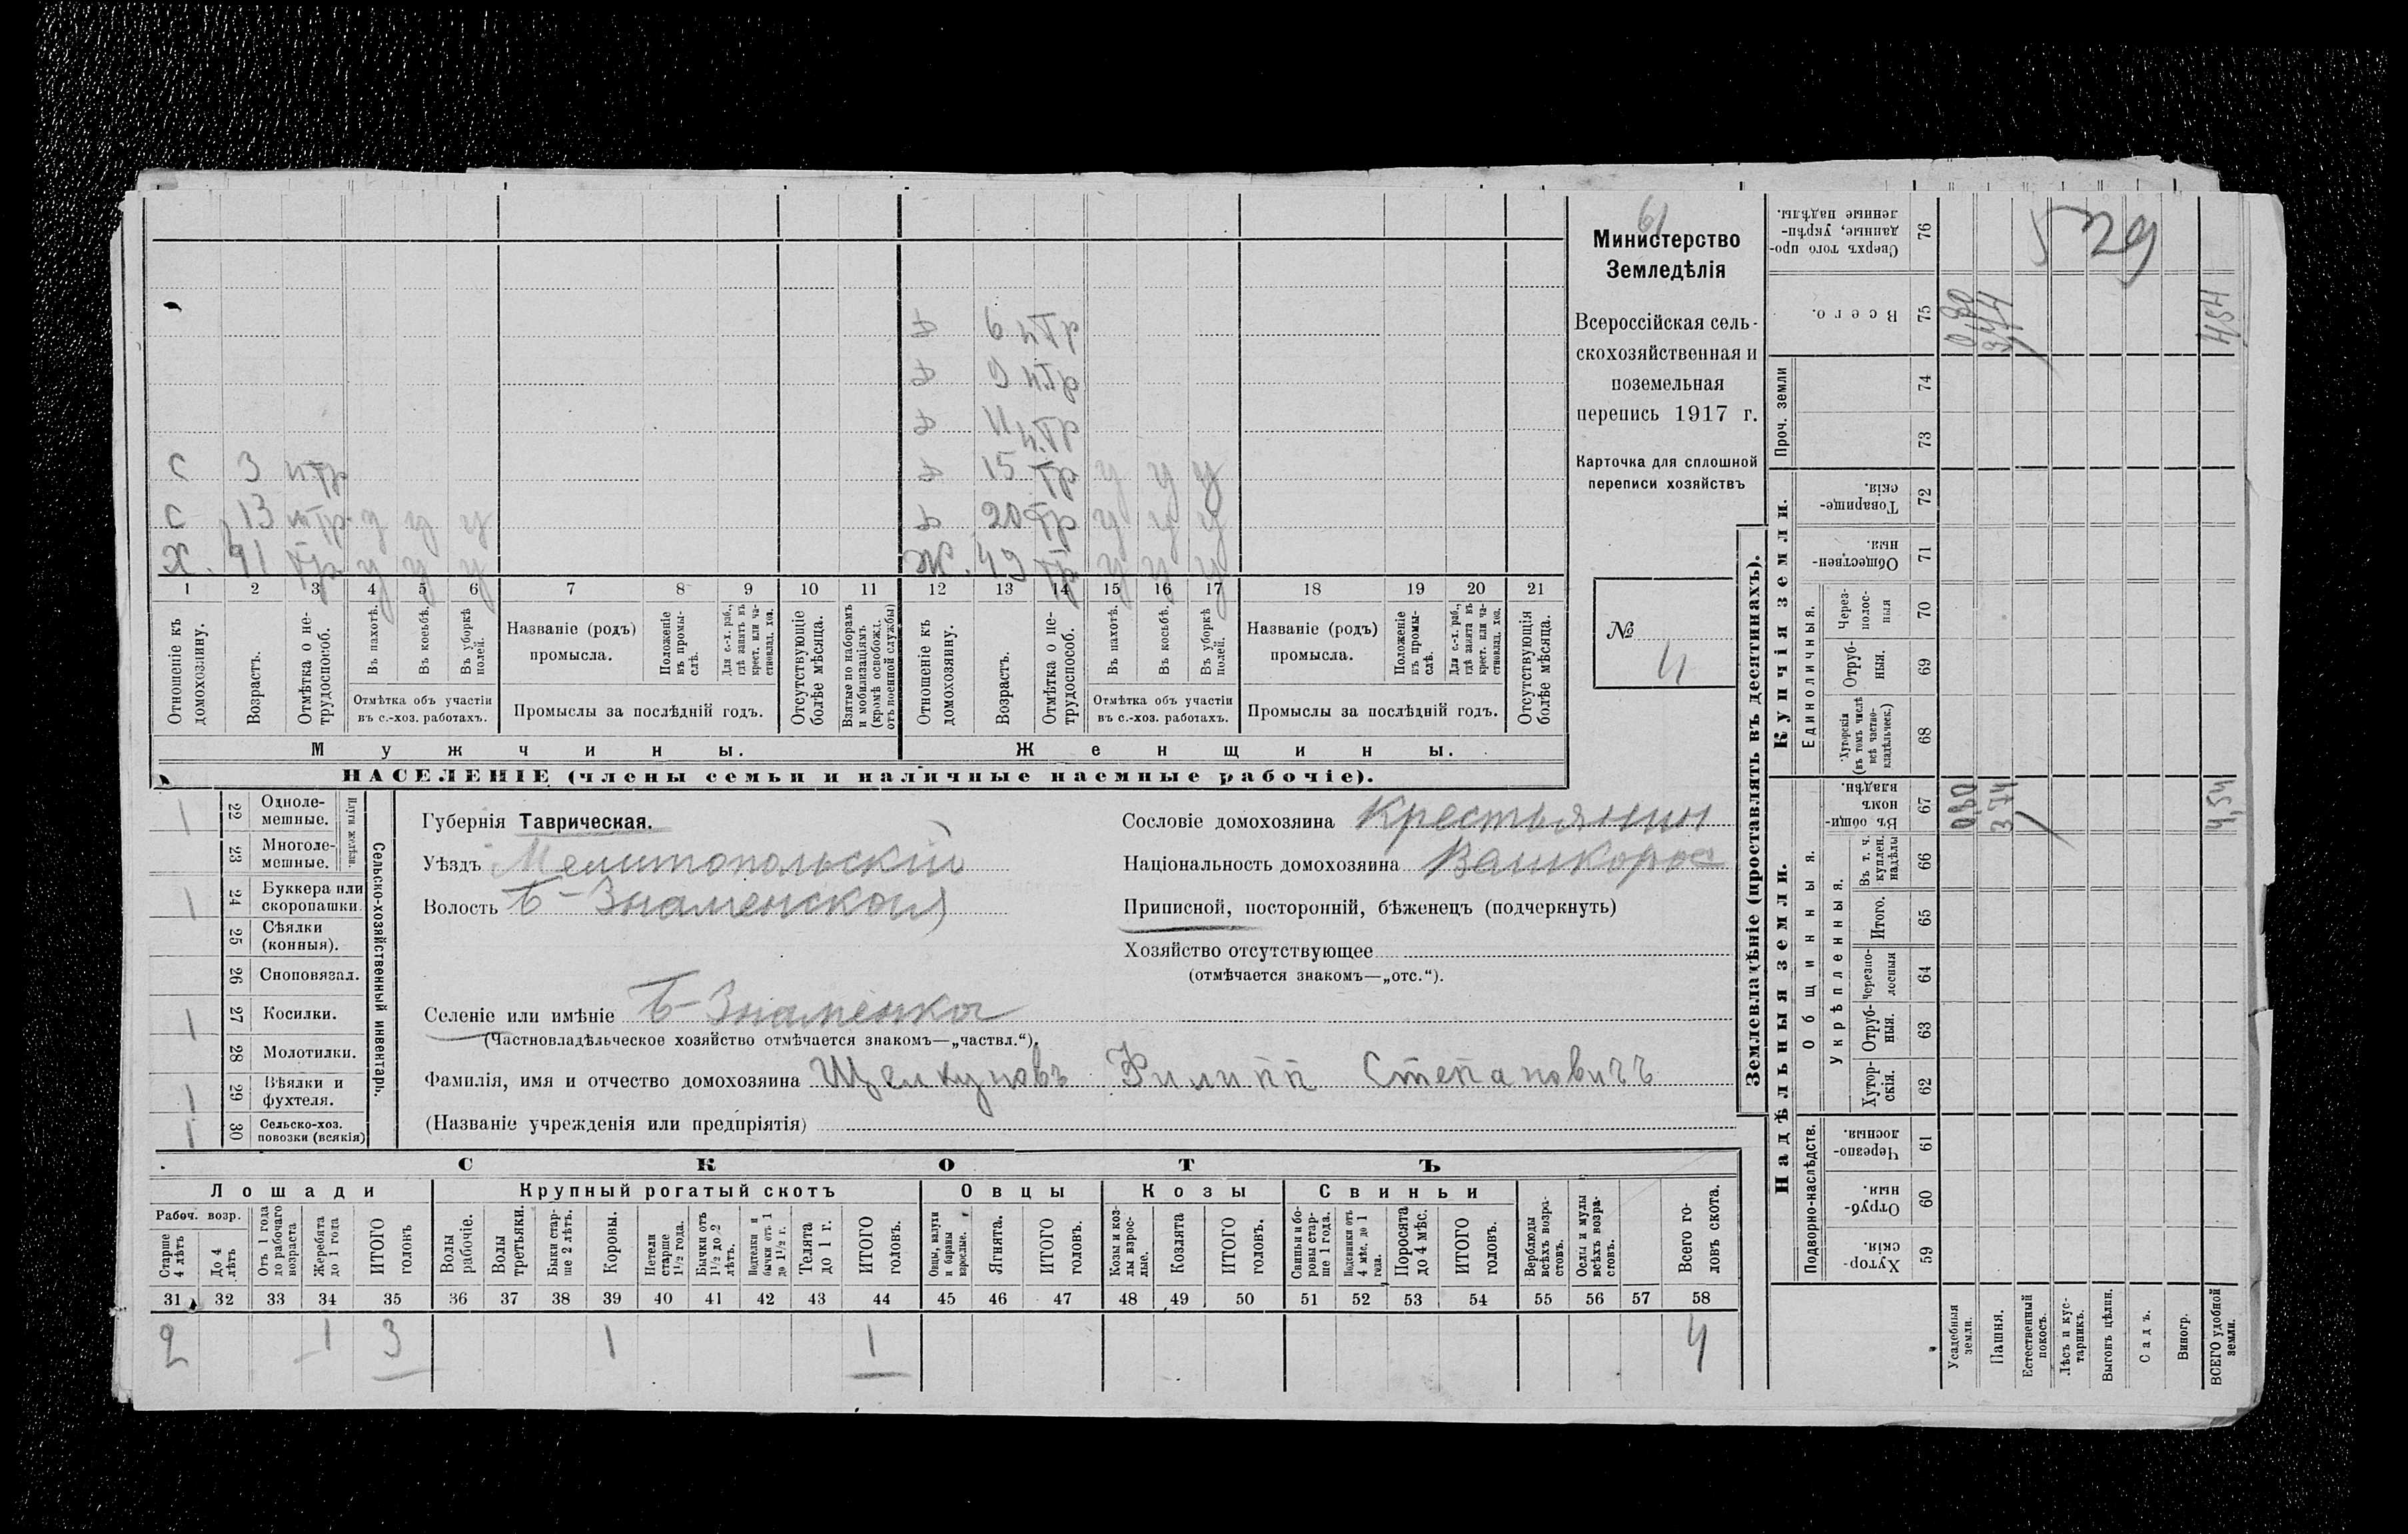 61
Министерство
Земледѣлія
Всероссійская сель-
скохозяйственная и
поземельная
перепись 1917 г.
Карточка для сплошной
переписи хозяйствъ
№ 4
6 нтр
9 нтр
11 н.тр
С 3 нтр 15 тр у у у
С 13 тр у у у 20 тр у у у
Х. 41 тр у у у Ж. 49 тр у у у
1 2 3 4 5 6 7 8 9 10 11 12 13 14 15 16 17 18 19 20 21
Отношеніе къ домохозяину.
Возрастъ.
Отмѣтка о не-трудоспособ.
Въ пахотѣ.
Въ косьбѣ.
Въ уборкѣ полей.
Отмѣтка объ участіи въ с.-хоз. работахъ.
Названіе (родъ) промысла.
Положеніе въ промы-слѣ.
Для с.-х. раб., гдѣ занятъ въ крест. или ча-стновлад. хоз.
Промыслы за послѣдній годъ.
Отсутствующіе болѣе мѣсяца.
Взятые по наборамъ и мобилизаціямъ (кромѣ освобожд. отъ военной службы)
Отношеніе къ домохозяину.
Возрастъ.
Отмѣтка о не-трудоспособ.
Въ пахотѣ.
Въ косьбѣ.
Въ уборкѣ полей.
Отмѣтка объ участіи въ с.-хоз. работахъ.
Названіе (родъ) промысла.
Положеніе въ промы-слѣ.
Для с.-х. раб., гдѣ занята въ крест. или ча-стновлад. хоз.
Промыслы за послѣдній годъ.
Отсутствующія болѣе мѣсяца.
Мужчины. Женщины.
НАСЕЛЕНІЕ (члены семьи и наличные наемные рабочіе).
1 22 Одноле-мешные.
23 Многоле-мешные.
Плуги желѣзн.
1 24 Буккера или скоропашки.
25 Сѣялки (конныя).
26 Сноповязал.
1 27 Косилки.
28 Молотилки.
1 29 Вѣялки и фухтеля.
1 30 Сельско-хоз. повозки (всякія)
Сельско-хозяйственный инвентарь.
Губернія Таврическая.
Уѣздъ Мелитопольскій
Волость Б-Знаменская
Селеніе или имѣніе Б-Знаменка
(Частновладѣльческое хозяйство отмѣчается знакомъ—„частвл.“).
Фамилія, имя и отчество домохозяина Щелкуновъ Филипп Степановичъ
(Названіе учрежденія или предпріятія)
Сословіе домохозяина Крестьянин
Національность домохозяина
Приписной, посторонній, бѣженецъ (подчеркнуть)
Хозяйство отсутствующее
(отмѣчается знакомъ—„отс.“).
СКОТЪ
Лошади Крупный рогатый скотъ Овцы Козы Свиньи
Рабоч. возр.
Старше 4 лѣтъ
До 4 лѣтъ
Отъ 1 года до рабочаго возраста
Жеребята до 1 года
ИТОГО головъ
Волы рабочіе.
Волы третьяки.
Быки стар-ше 2 лѣтъ.
Коровы.
Нетели старше 1½ года.
Бычки отъ 1½ до 2 лѣтъ.
Подтелки и бычки отъ 1 до 1½ г.
Телята до 1 г.
ИТОГО головъ.
Овцы, валухи и бараны взрослые.
Ягнята.
ИТОГО головъ.
Козы и коз-лы взрос-лые.
Козлята
ИТОГО головъ.
Свиньи и бо-ровы стар-ше 1 года.
Подсвинки отъ 4 мѣс. до 1 года.
Поросята до 4 мѣс.
ИТОГО головъ.
Верблюды всѣхъ возра-стовъ.
Ослы и мулы всѣхъ возра-стовъ.
Всего го-ловъ скота.
31 32 33 34 35 36 37 38 39 40 41 42 43 44 45 46 47 48 49 50 51 52 53 54 55 56 57 58
2 1 3 1 1 4
Землевладѣніе (проставлять въ десятинахъ).
Надѣльныя земли. Купчія земли.
Проч. земли
Подворно-наслѣдств.
Общинныя.
Укрѣпленныя.
Единоличныя.
Сверхъ того про-данные, укрѣп-ленные надѣлы. 76
5 29
Всего. 75 0,80 3,74 4,54
74
73
Товарище-скія. 72
Обществен-ныя. 71
Через-полос-ныя 70
Отруб-ныя. 69
Хуторскія (въ томъ числѣ всѣ частно-владѣльческ.) 68
Въ общин-номъ владѣн. 67 0,80 3,74 4,54
Въ т. ч. куплен. надѣлы 66
Итого. 65
Черезпо-лосныя 64
Отруб-ныя. 63
Хутор-скія. 62
Черезпо-лосныя. 61
Отруб-ныя. 60
Хутор-скія. 59
Усадебныя земли.
Пашня.
Естественный покосъ.
Лѣсъ и кус-тарникъ.
Выгонъ цѣлин.
Садъ.
Виногр.
ВСЕГО удобной земли.